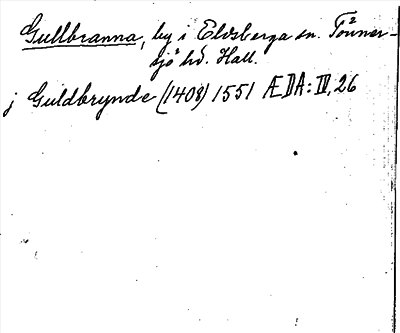 Gullbranna, by i Eldsberga sn. Tönner-
sjö hd. Hall.
j Guldbrynde (1408) 1551 ÆDA: IV, 26